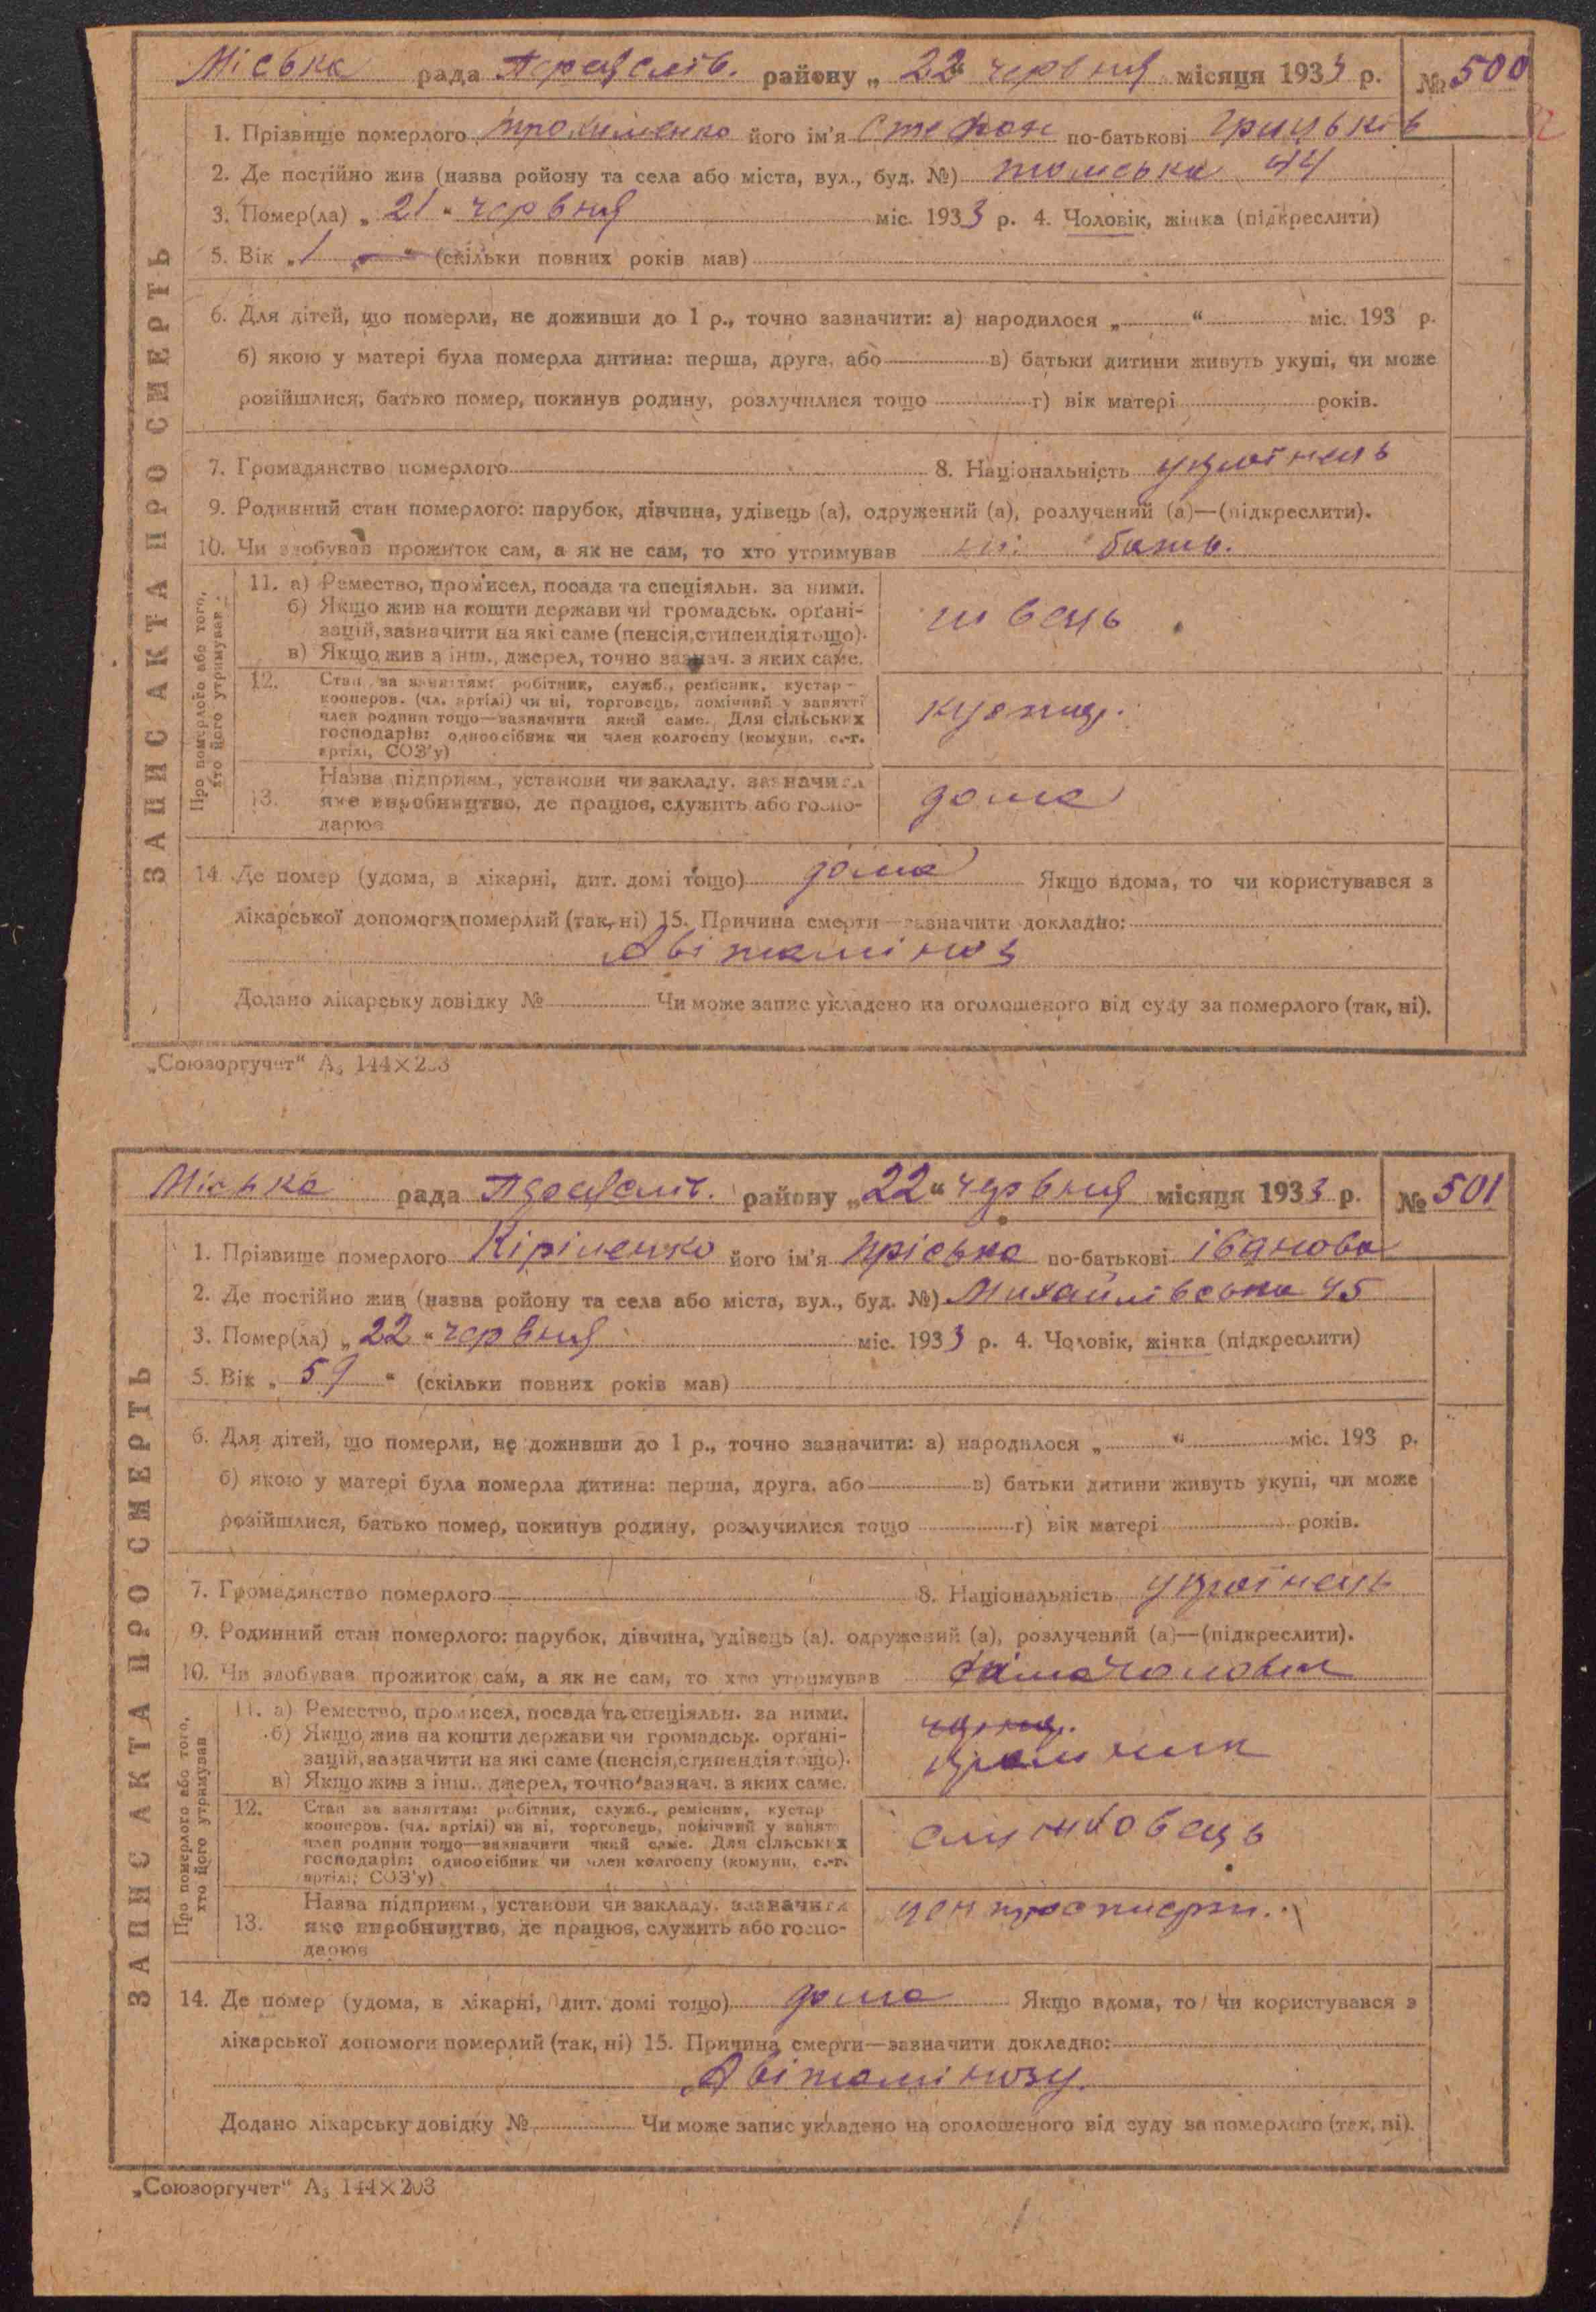 Міська рада Переяслів. району „22“ червня місяця 1933 р. № 500
ЗАПИС АКТА ПРО СМЕРТЬ
1. Прізвище померлого Трохименко його ім'я Степан по-батькові Грицьків
2. Де постійно жив (назва ройону та села або міста, вул., буд. №) 44
3. Помер(ла) „21“ червня міс. 1933 р. 4. Чоловік, жінка (підкреслити)
5. Вік „1“ (скільки повних років мав)
6. Для дітей, що померли, не доживши до 1 р., точно зазначити: а) народилося „ “ міс. 193 р.
б) якою у матері була померла дитина: перша, друга, або в) батьки дитини живуть укупі, чи може
розійшлися, батько помер, покинув родину, розлучилися тощо г) вік матері років.
7. Громадянство померлого 8. Національність українець
9. Родинний стан померлого: парубок, дівчина, удівець (а), одружений (а), розлучений (а)—(підкреслити).
10. Чи здобував прожиток сам, а як не сам, то хто утримував ні батв.
Про померлого або того, хто його утримував
11. а) Ремество, промисел, посада та спеціяльн. за ними.
б) Якщо жив на кошти держави чи громадськ. органі-
зацій, зазначити на які саме (пенсія, стипендія тощо).
в) Якщо жив з інш., джерел, точно зазнач. з яких саме.
швець
12. Стан за заняттям: робітник, служб., ремісник, кустар-
кооперов. (чл. артілі) чи ні, торговець, помічний у занятті
член родини тощо—зазначити який саме. Для сільських
господарів: одноосібник чи член колгоспу (комуни, с.-г.
артілі, СОЗ'у)
кустар.
13. Назва підприєм., установи чи закладу, зазначити
яке виробництво, де працює, служить або госпо-
дарює
дома
14. Де помер (удома, в лікарні, дит. домі тощо) дома Якщо вдома, то чи користувався з
лікарської допомоги померлий (так, ні) 15. Причина смерти—зазначити докладно:
Авітаміноз
Додано лікарську довідку № Чи може запис укладено на оголошеного від суду за померлого (так, ні).
„Союзоргучет“ А₅ 144×203
Міська рада Переяслів. району „22“ червня місяця 1933 р. № 501
ЗАПИС АКТА ПРО СМЕРТЬ
1. Прізвище померлого Кіріленко його ім'я Пріська по-батькові Іванова
2. Де постійно жив (назва ройону та села або міста, вул., буд. №) Михайлівська 45
3. Помер(ла) „22“ червня міс. 1933 р. 4. Чоловік, жінка (підкреслити)
5. Вік „59“ (скільки повних років мав)
6. Для дітей, що померли, не доживши до 1 р., точно зазначити: а) народилося „ “ міс. 193 р.
б) якою у матері була померла дитина: перша, друга, або в) батьки дитини живуть укупі, чи може
розійшлися, батько помер, покинув родину, розлучилися тощо г) вік матері років.
7. Громадянство померлого 8. Національність українець
9. Родинний стан померлого: парубок, дівчина, удівець (а), одружений (а), розлучений (а)—(підкреслити).
10. Чи здобував прожиток сам, а як не сам, то хто утримував чоловік
Про померлого або того, хто його утримував
11. а) Ремество, промисел, посада та спеціяльн. за ними.
б) Якщо жив на кошти держави чи громадськ. органі-
зацій, зазначити на які саме (пенсія, стипендія тощо).
в) Якщо жив з інш., джерел, точно зазнач. з яких саме.
крамник
12. Стан за заняттям: робітник, служб., ремісник, кустар
кооперов. (чл. артілі) чи ні, торговець, помічний у занятт
член родини тощо—зазначити який саме. Для сільських
господарів: одноосібник чи член колгоспу (комуни, с.-г.
артілі, СОЗ'у)
службовець
13. Назва підприєм., установи чи закладу, зазначити
яке виробництво, де працює, служить або госпо-
дарює
центроспирт.
14. Де помер (удома, в лікарні, дит. домі тощо) дома Якщо вдома, то чи користувався з
лікарської допомоги померлий (так, ні) 15. Причина смерти—зазначити докладно:
Авітамінозу
Додано лікарську довідку № Чи може запис укладено на оголошеного від суду за померлого (так, ні).
„Союзоргучет“ А₅ 144×203